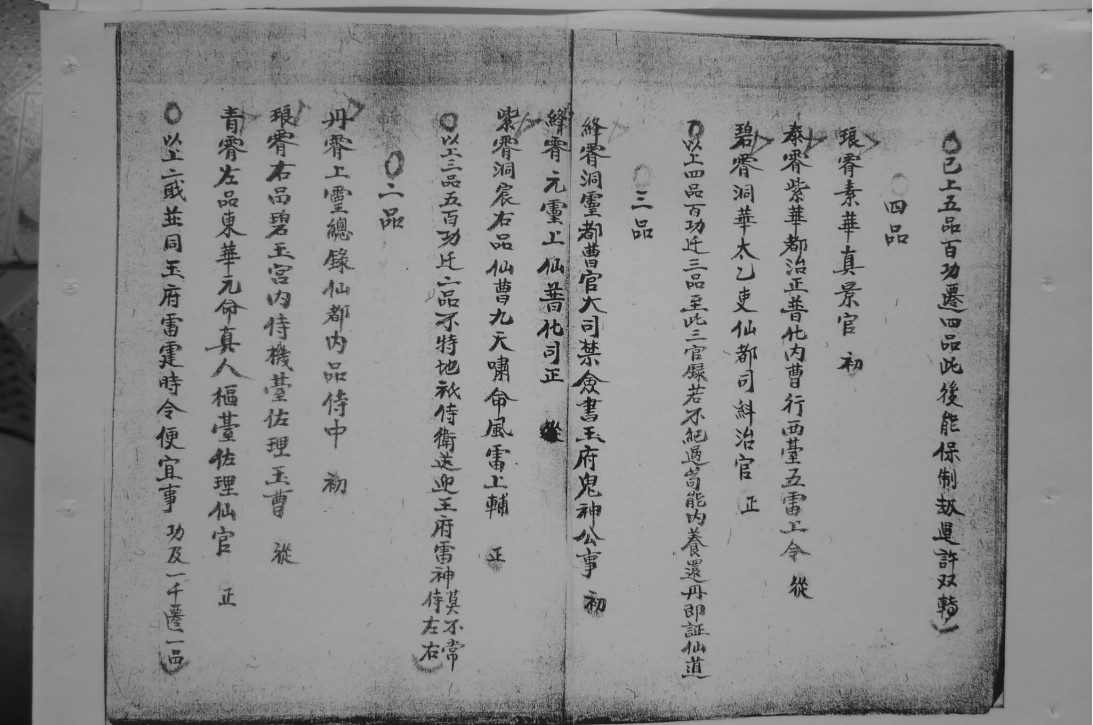 已上五品百功遷四品此後能保制劫運許双轉
四品
琅霄素華真景官 初
泰霄紫華都治正普化内曹行西臺五雷上令 從
碧霄洞華太乙吏仙都司糾治官 正
以上四品百功迁三品至此三官録若不紀過苟能内養還丹即証仙道
三品
絳霄洞靈都曹官大司禁僉書玉府鬼神公事 初
絳霄元靈上仙普化司正 從
紫霄洞宸右品仙曹九天嘯命風雷上輔 正
以上三品五百功迁二品不特地祇侍衛送迎玉府雷神莫不常侍左右
二品
丹霄上靈總錄仙都内品侍中 初
琅霄右品碧玉宮内侍機臺佐理玉曹 從
青霄左品東華元命真人樞臺佐理仙官 正
以上二戝並同玉府雷霆時令便宜事 功及一千遷一品